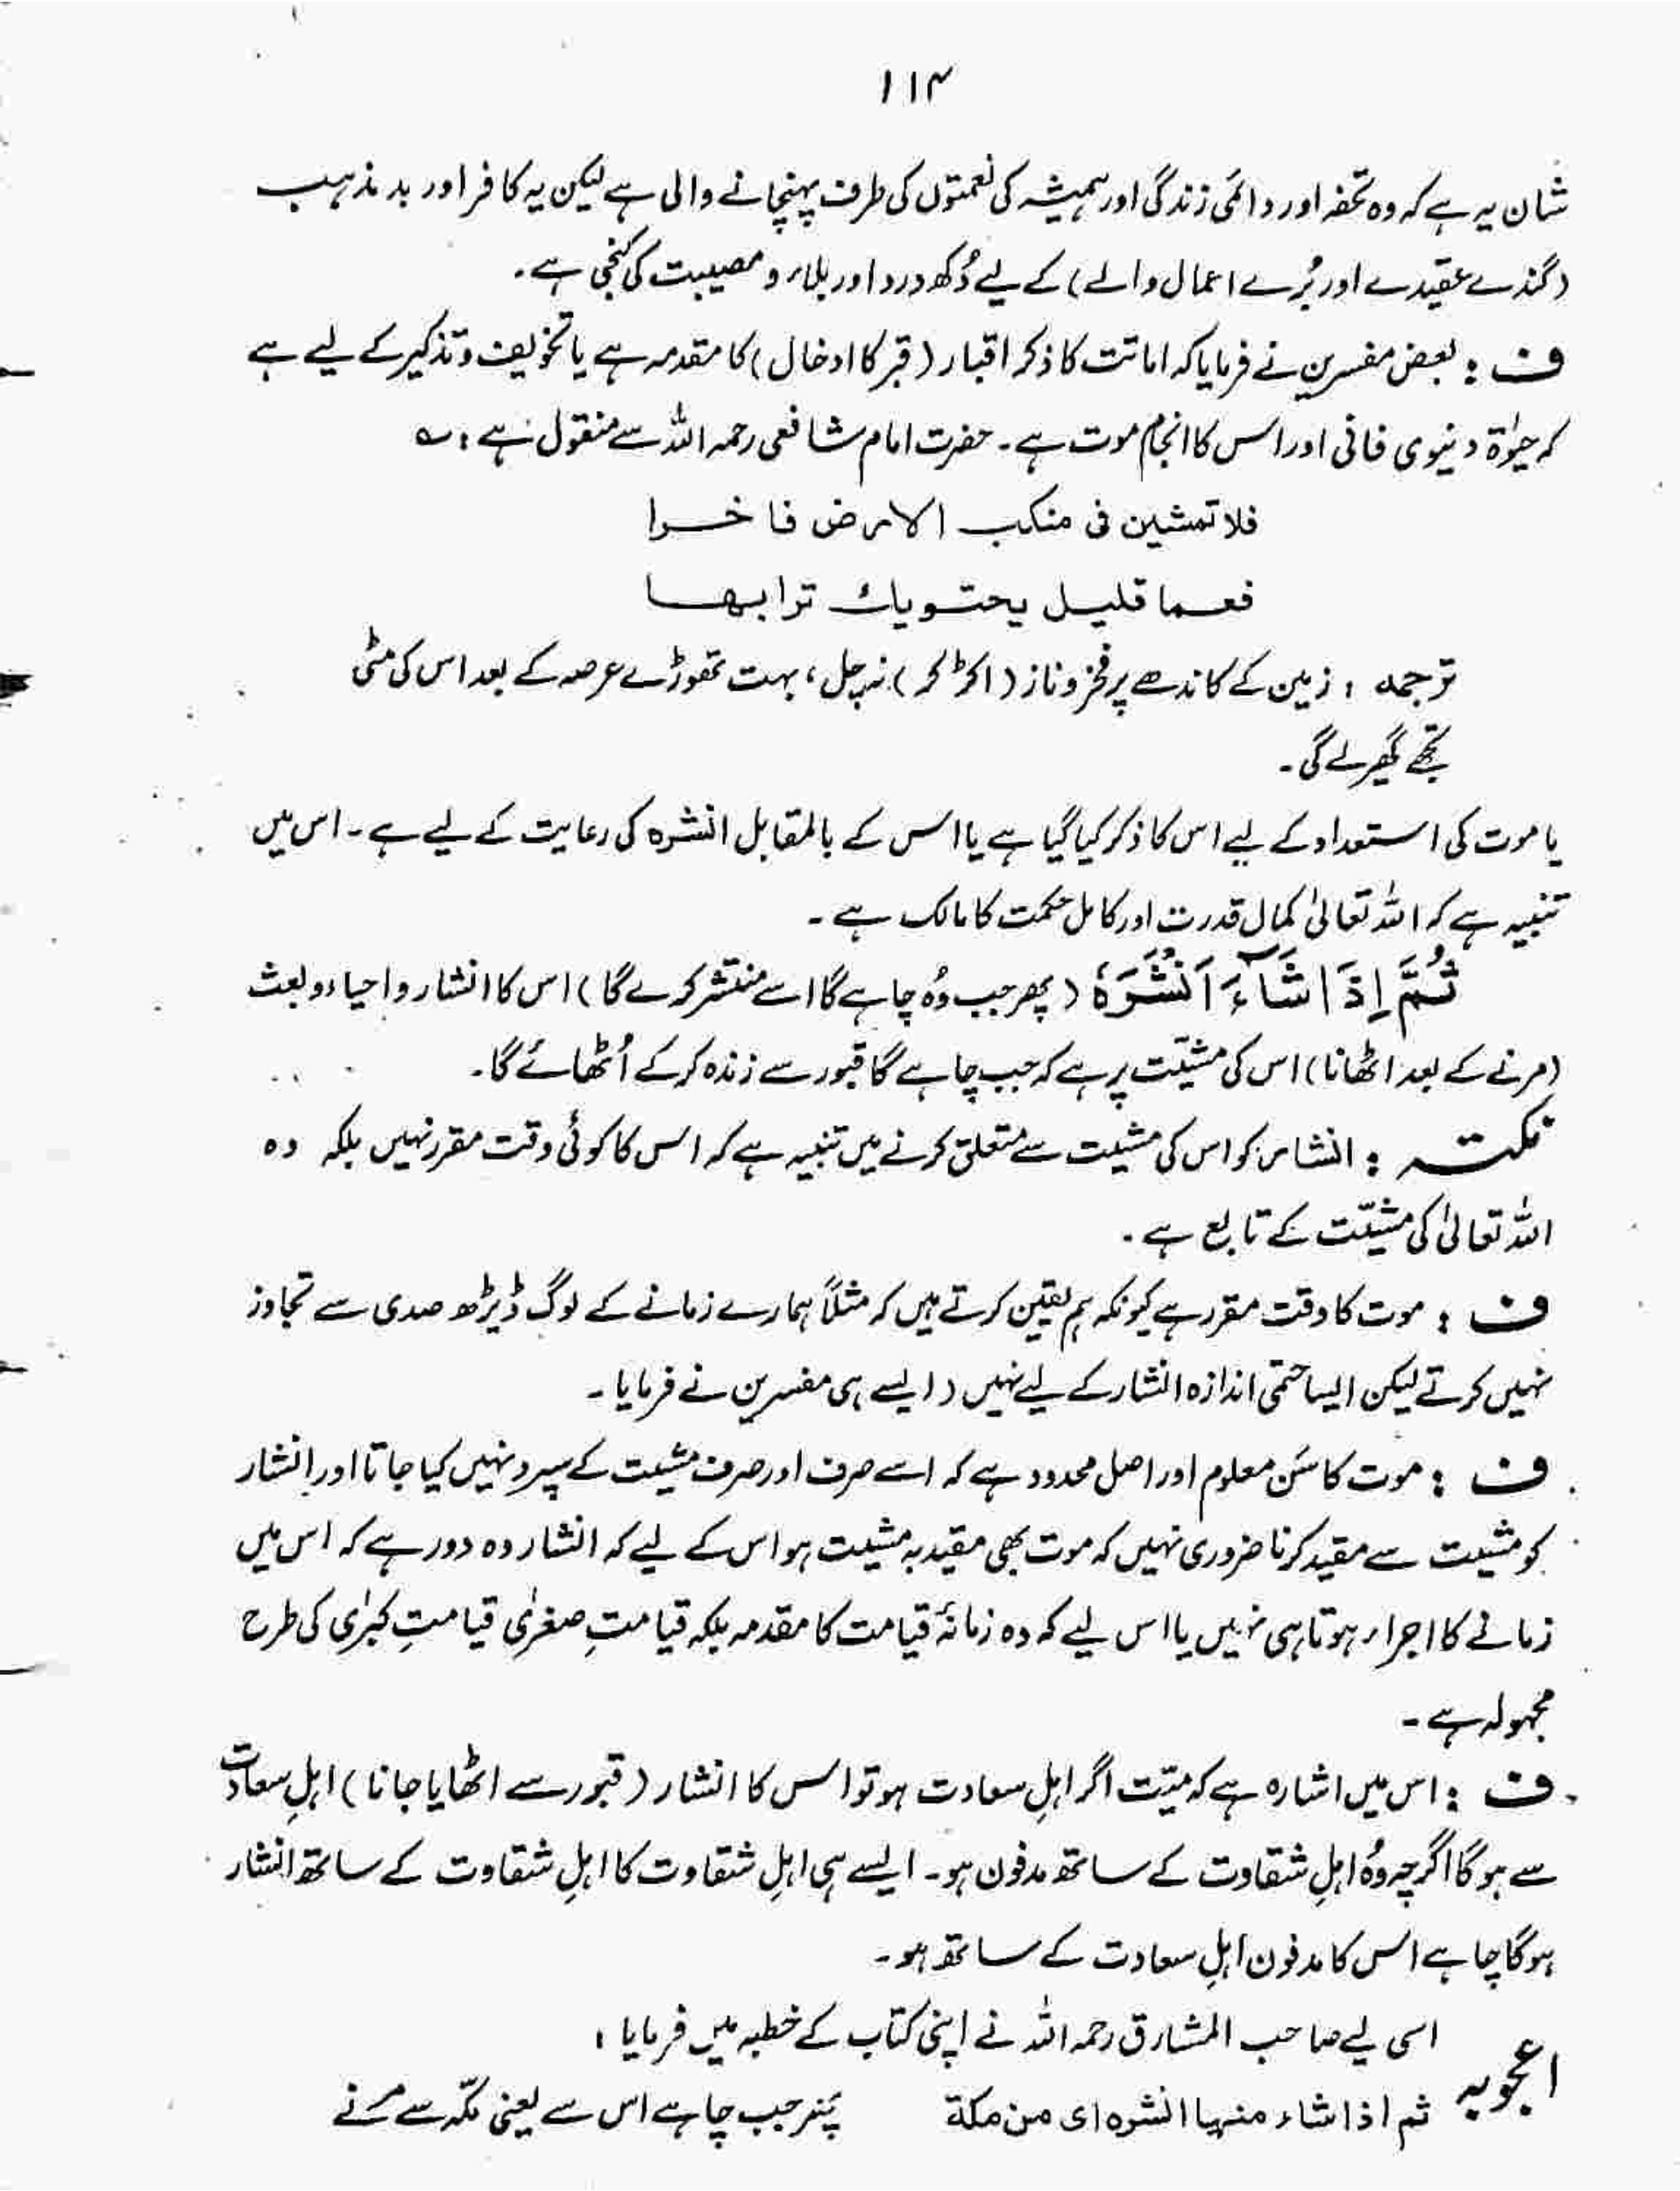 ۱۱۴
شان یہ ہے کہ وہ تحفہ اور دائمی زندگی اور ہمیشہ کی نعمتوں کی طرف پہنچانے والی ہے لیکن یہ کافر اور بد مذہب
(گندے عقیدے اور بُرے اعمال والے) کے لیے دُکھ درد اور بلاء و مصیبت کی کنجی ہے۔
ف : بعض مفسرین نے فرمایا کہ اماتت کا ذکر اقبار (قبر کا ادخال) کا مقدمہ ہے یا تخویف و تذکیر کے لیے ہے
کہ حیوٰۃ دنیوی فانی اور اس کا انجام موت ہے۔ حضرت امام شافعی رحمہ اللہ سے منقول ہے : ؎
فلا تمشین فی منکب الارض فاخرا
فعما قلیل یحتویك ترابھا
ترجمہ : زمین کے کاندھے پر فخر و ناز (اکڑ کر) نہ چل، بہت تھوڑے عرصہ کے بعد اس کی مٹی
تجھے گھیر لے گی۔
یا موت کی استعداد کے لیے اس کا ذکر کیا گیا ہے یا اس کے بالمقابل انشرہ کی رعایت کے لیے ہے۔ اس میں
تنبیہ ہے کہ اللہ تعالیٰ کمال قدرت اور کامل حکمت کا مالک ہے۔
ثُمَّ اِذَا شَآءَ اَنْشَرَہٗ (پھر جب وُہ چاہے گا اسے منتشر کرے گا) اس کا انشار و احیاء و بعث
(مرنے کے بعد اٹھانا) اس کی مشیّت پر ہے کہ جب چاہے گا قبور سے زندہ کر کے اُٹھائے گا۔
نکتہ : انشار کو اس کی مشیت سے متعلق کرنے میں تنبیہ ہے کہ اس کا کوئی وقت مقرر نہیں بلکہ وہ
اللہ تعالیٰ کی مشیّت کے تابع ہے۔
ف : موت کا وقت مقرر ہے کیونکہ ہم یقین کرتے ہیں کہ مثلاً ہمارے زمانے کے لوگ ڈیڑھ صدی سے تجاوز
نہیں کرتے لیکن ایسا حتمی اندازہ انشار کے لیے نہیں (ایسے ہی مفسرین نے فرمایا۔
ف : موت کا سَن معلوم اور اصل محدود ہے کہ اسے صرف اور صرف مشیت کے سپرد نہیں کیا جاتا اور انشار
کو مشیت سے مقید کرنا ضروری نہیں کہ موت بھی مقید بہ مشیت ہو اس کے لیے کہ انشار وہ دور ہے کہ اس میں
زمانے کا اجراء ہوتا ہی نہیں یا اس لیے کہ وہ زمانۂ قیامت کا مقدمہ بلکہ قیامتِ صغرٰی قیامتِ کبرٰی کی طرح
مجہولہ ہے۔
ف : اس میں اشارہ ہے کہ میّت اگر اہلِ سعادت ہو تو اس کا انشار (قبور سے اٹھایا جانا) اہلِ سعادت
سے ہو گا اگرچہ وُہ اہلِ شقاوت کے ساتھ مدفون ہو۔ ایسے ہی اہلِ شقاوت کا اہلِ شقاوت کے ساتھ انشار
ہوگا چاہے اس کا مدفون اہلِ سعادت کے ساتھ ہو۔
اعجوبہ اسی لیے صاحب المشارق رحمہ اللہ نے اپنی کتاب کے خطبہ میں فرمایا :
ثم اذا شاء منھا انشرہ ای من مکة پھر جب چاہے اس سے یعنی مکّہ سے مرنے